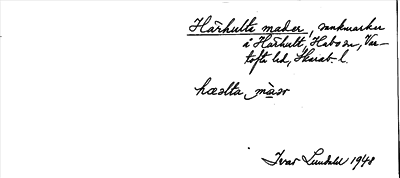 Hårhults mader, sankmarker
å Hårhult, Habo sn, Var-
tofta hd, Skarab. l.
hæalta màər
Ivar Lundahl 1948